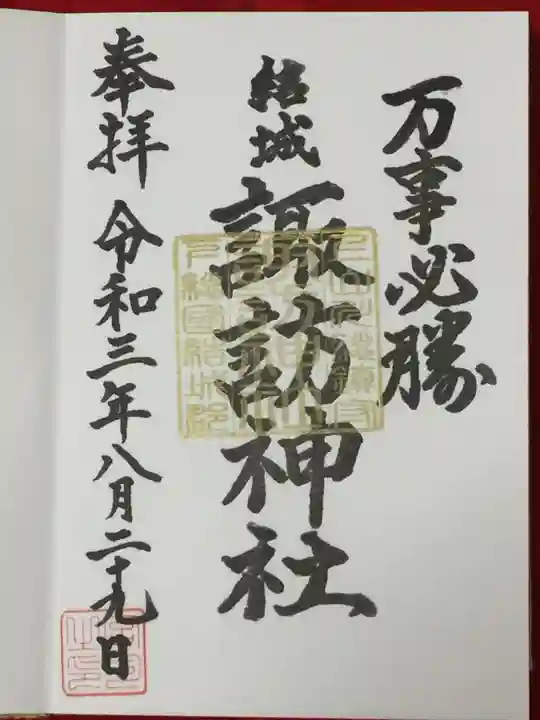 万事必勝
結城
諏訪神社
奉拝 令和三年八月二十九日